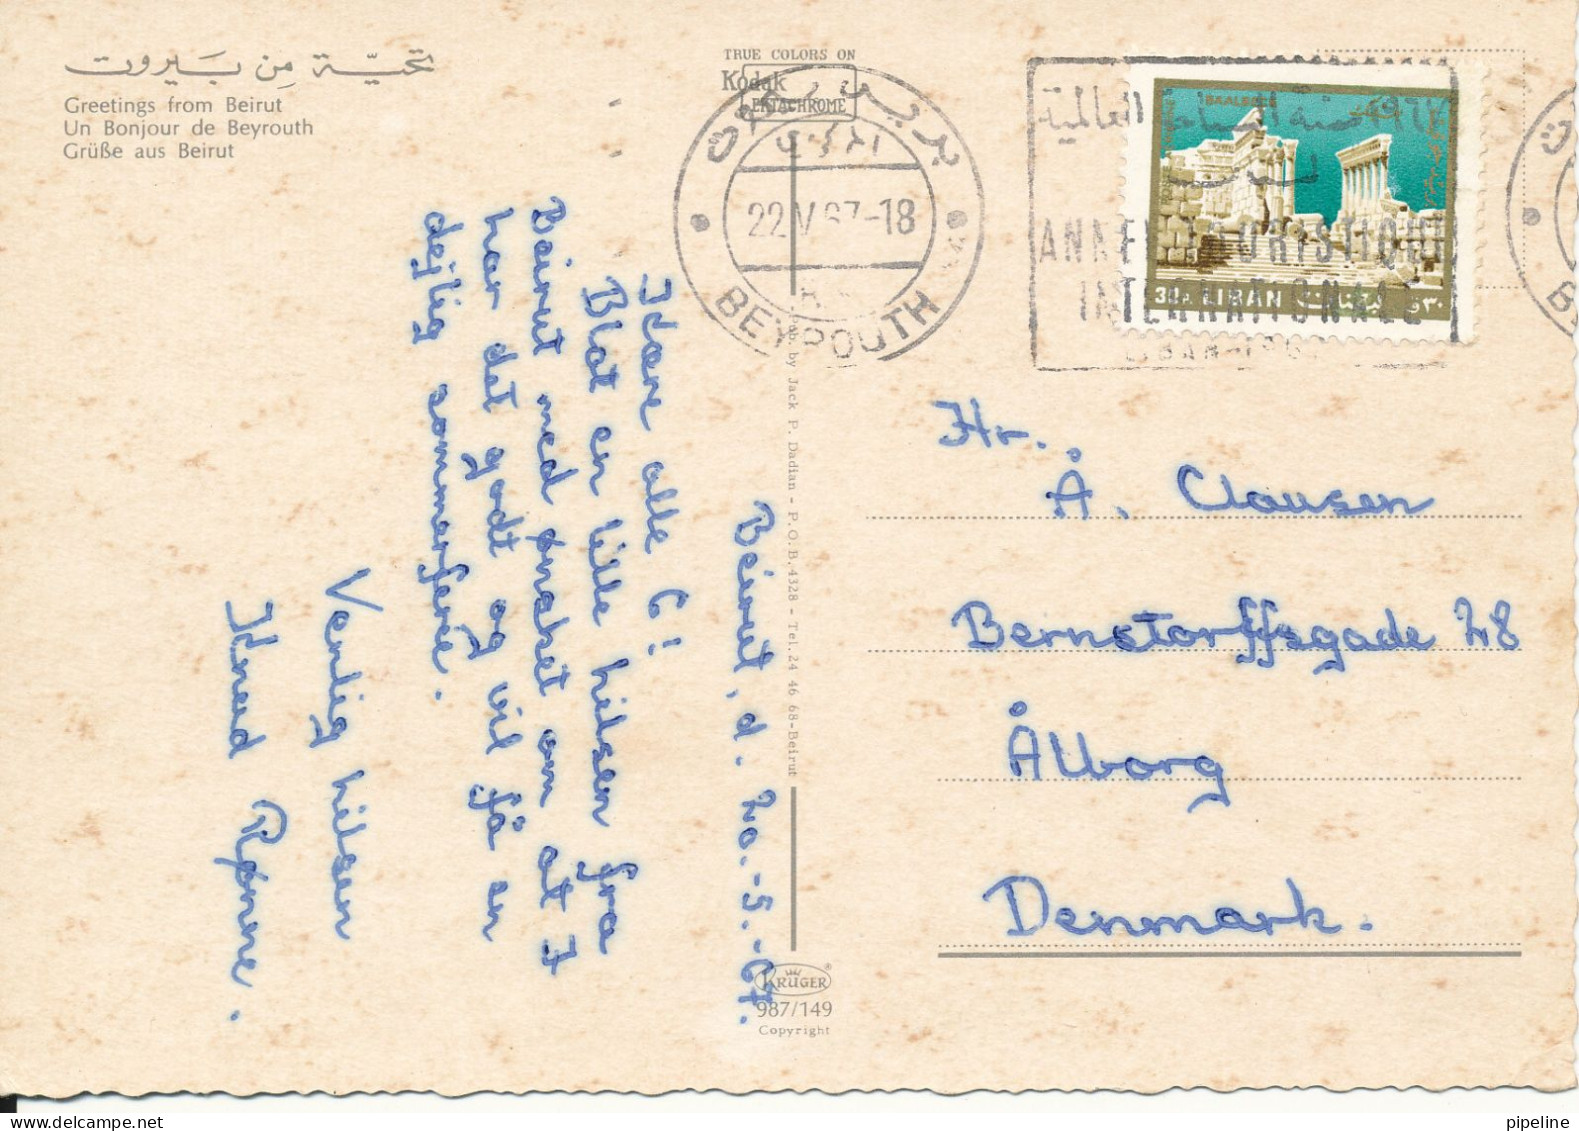 تحيّة من بيروت
Greetings from Beirut
Un Bonjour de Beyrouth
Grüße aus Beirut
TRUE COLORS ON
Kodak
EKTACHROME
بيروت
22 V 67-18
BEYROUTH
السياحة العالمية
لبنان
ANNEE TOURISTIQUE
INTERNATIONALE
LIBAN-1967
BAALBECK
30P. LIBAN
Beirut, d. 20.-5.-67.
Kære alle 6!
Blot en lille hilsen fra
Beirut med ønsket om at I
har det godt og vil få en
dejlig sommerferie.
Venlig hilsen
Knud Rønne.
Pub. by Jack P. Dadian - P.O.B. 4328 - Tel. 24 46 68-Beirut
KRÜGER
987/149
Copyright
Hr.
Å. Clausen
Bernstorffsgade 28
Ålborg
Denmark.
pipeline